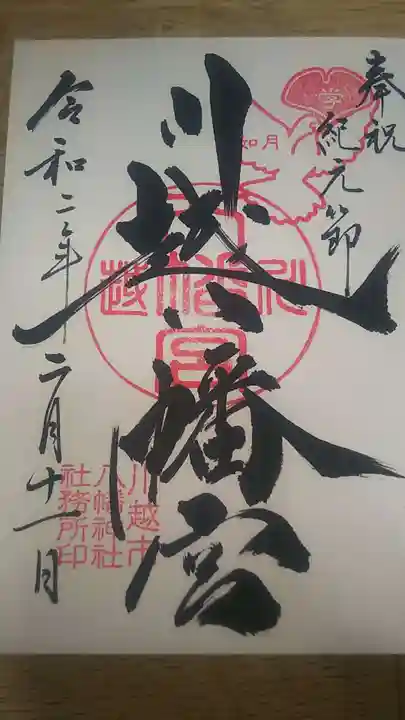 奉祝
紀元節
学
如月
川越八幡宮
川越八幡宮
川越市
八幡神社
社務所印
令和二年二月十一日